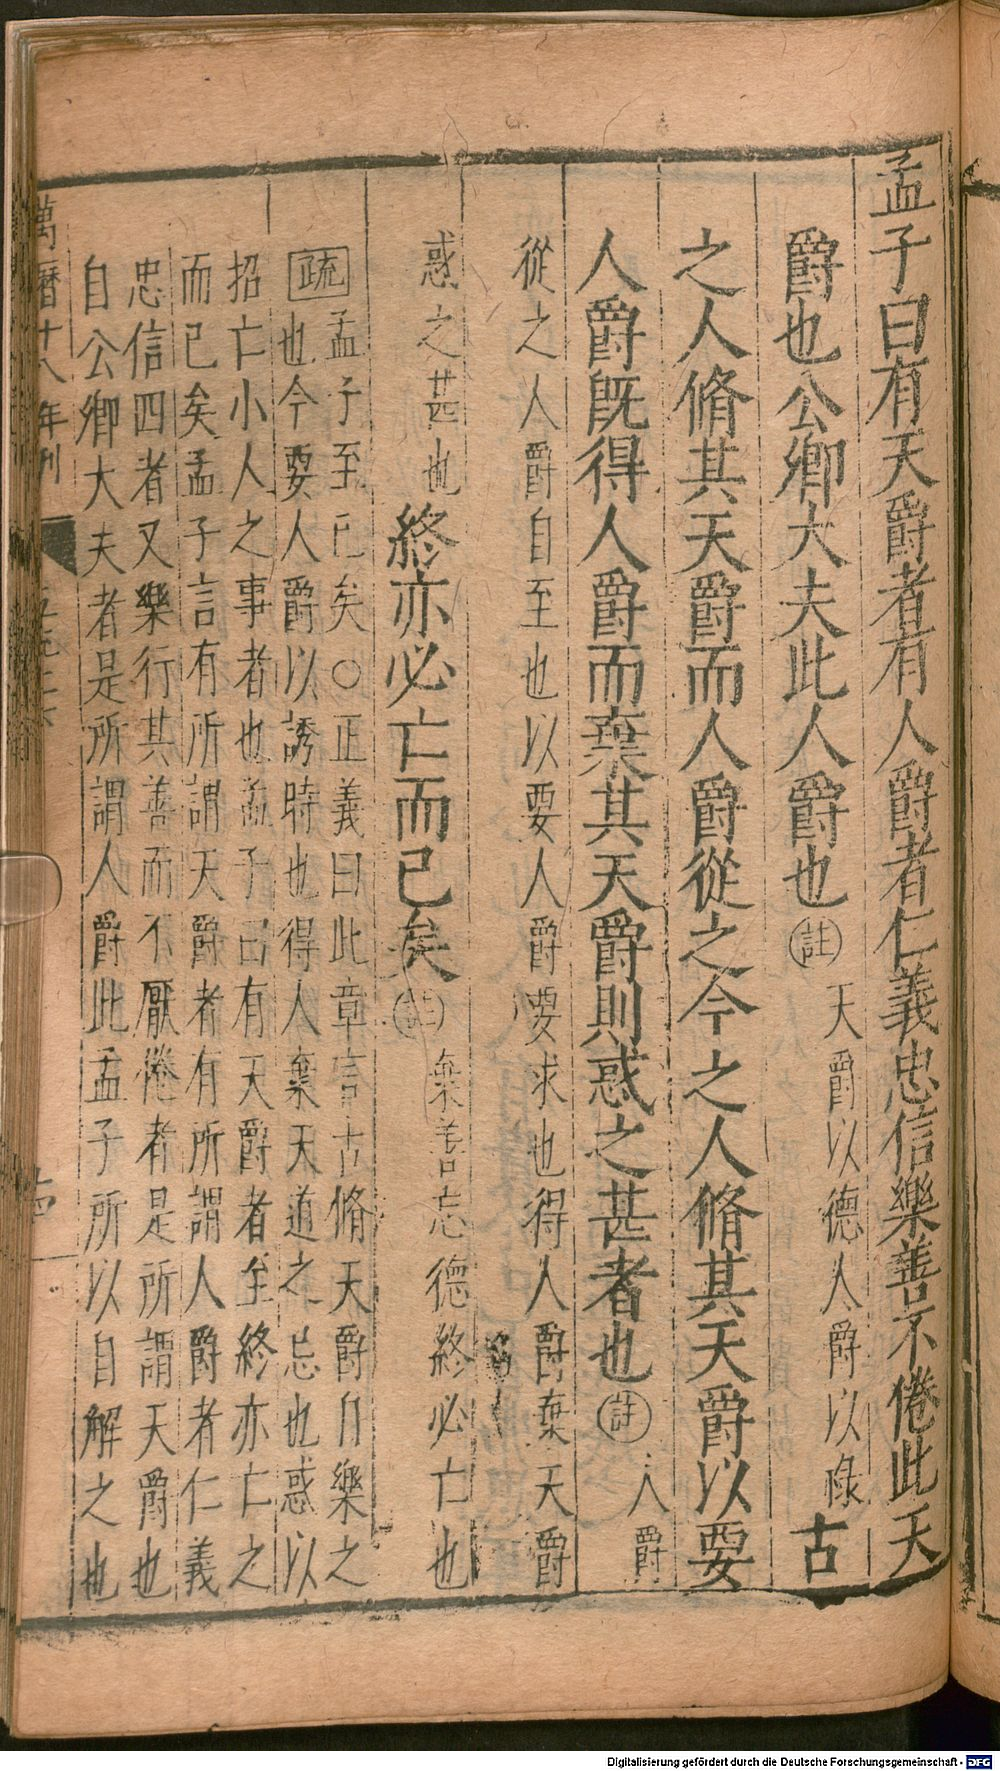 孟子曰有天爵者有人爵者仁義忠信樂善不倦此天
爵也公卿大夫此人爵也註天爵以德人爵以祿古
之人脩其天爵而人爵從之今之人脩其天爵以要
人爵既得人爵而棄其天爵則惑之甚者也註人爵
從之人爵自至也以要人爵要求也得人爵棄天爵
惑之甚也終亦必亡而已矣註棄善忘德終必亡也
疏孟子至已矣○正義曰此章言古脩天爵自樂之
也今要人爵以誘時也得人棄天道之忌也惑以
招亡小人之事者也孟子曰有天爵者至終亦亡之
而已矣孟子言有所謂天爵者有所謂人爵者仁義
忠信四者又樂行其善而不厭倦者是所謂天爵也
自公卿大夫者是所謂人爵此孟子所以自解之也
萬曆十八年刊
Digitalisierung gefördert durch die Deutsche Forschungsgemeinschaft - DFG